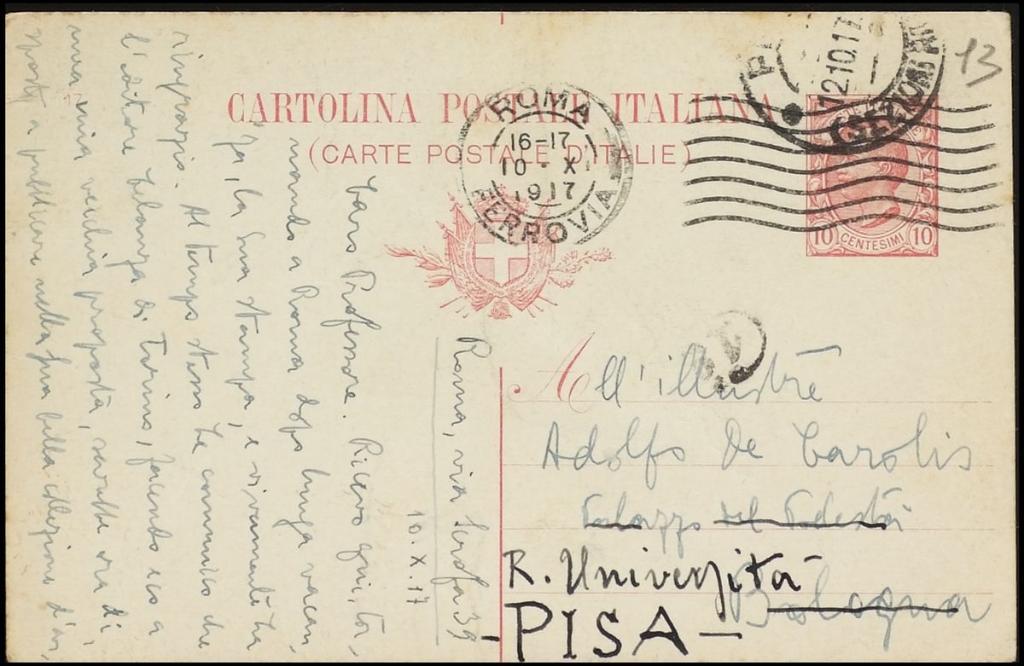 CARTOLINA POSTALE ITALIANA
(CARTE POSTALE D'ITALIE)
ROMA
16-17
10 · X
1917
FERROVIA
12.10.17
13
10 CENTESIMI 10
All'illustre
Adolfo De Carolis
Palazzo del Podestà
Bologna
R. Università
- PISA -
Roma, via Serofa 39
10. X. 17
Caro Professore. Ricevo qui, tor,
nando a Roma dopo lunga vacan,
za, la Sua stampa, e vivamente La
ringrazio. Al tempo stesso Le comunico che
l'editore Celanza di Torino, facendo eco a
una mia vecchia proposta, sarebbe ora di,
sposto a pubblicare nella sua bella collezione d'ar,